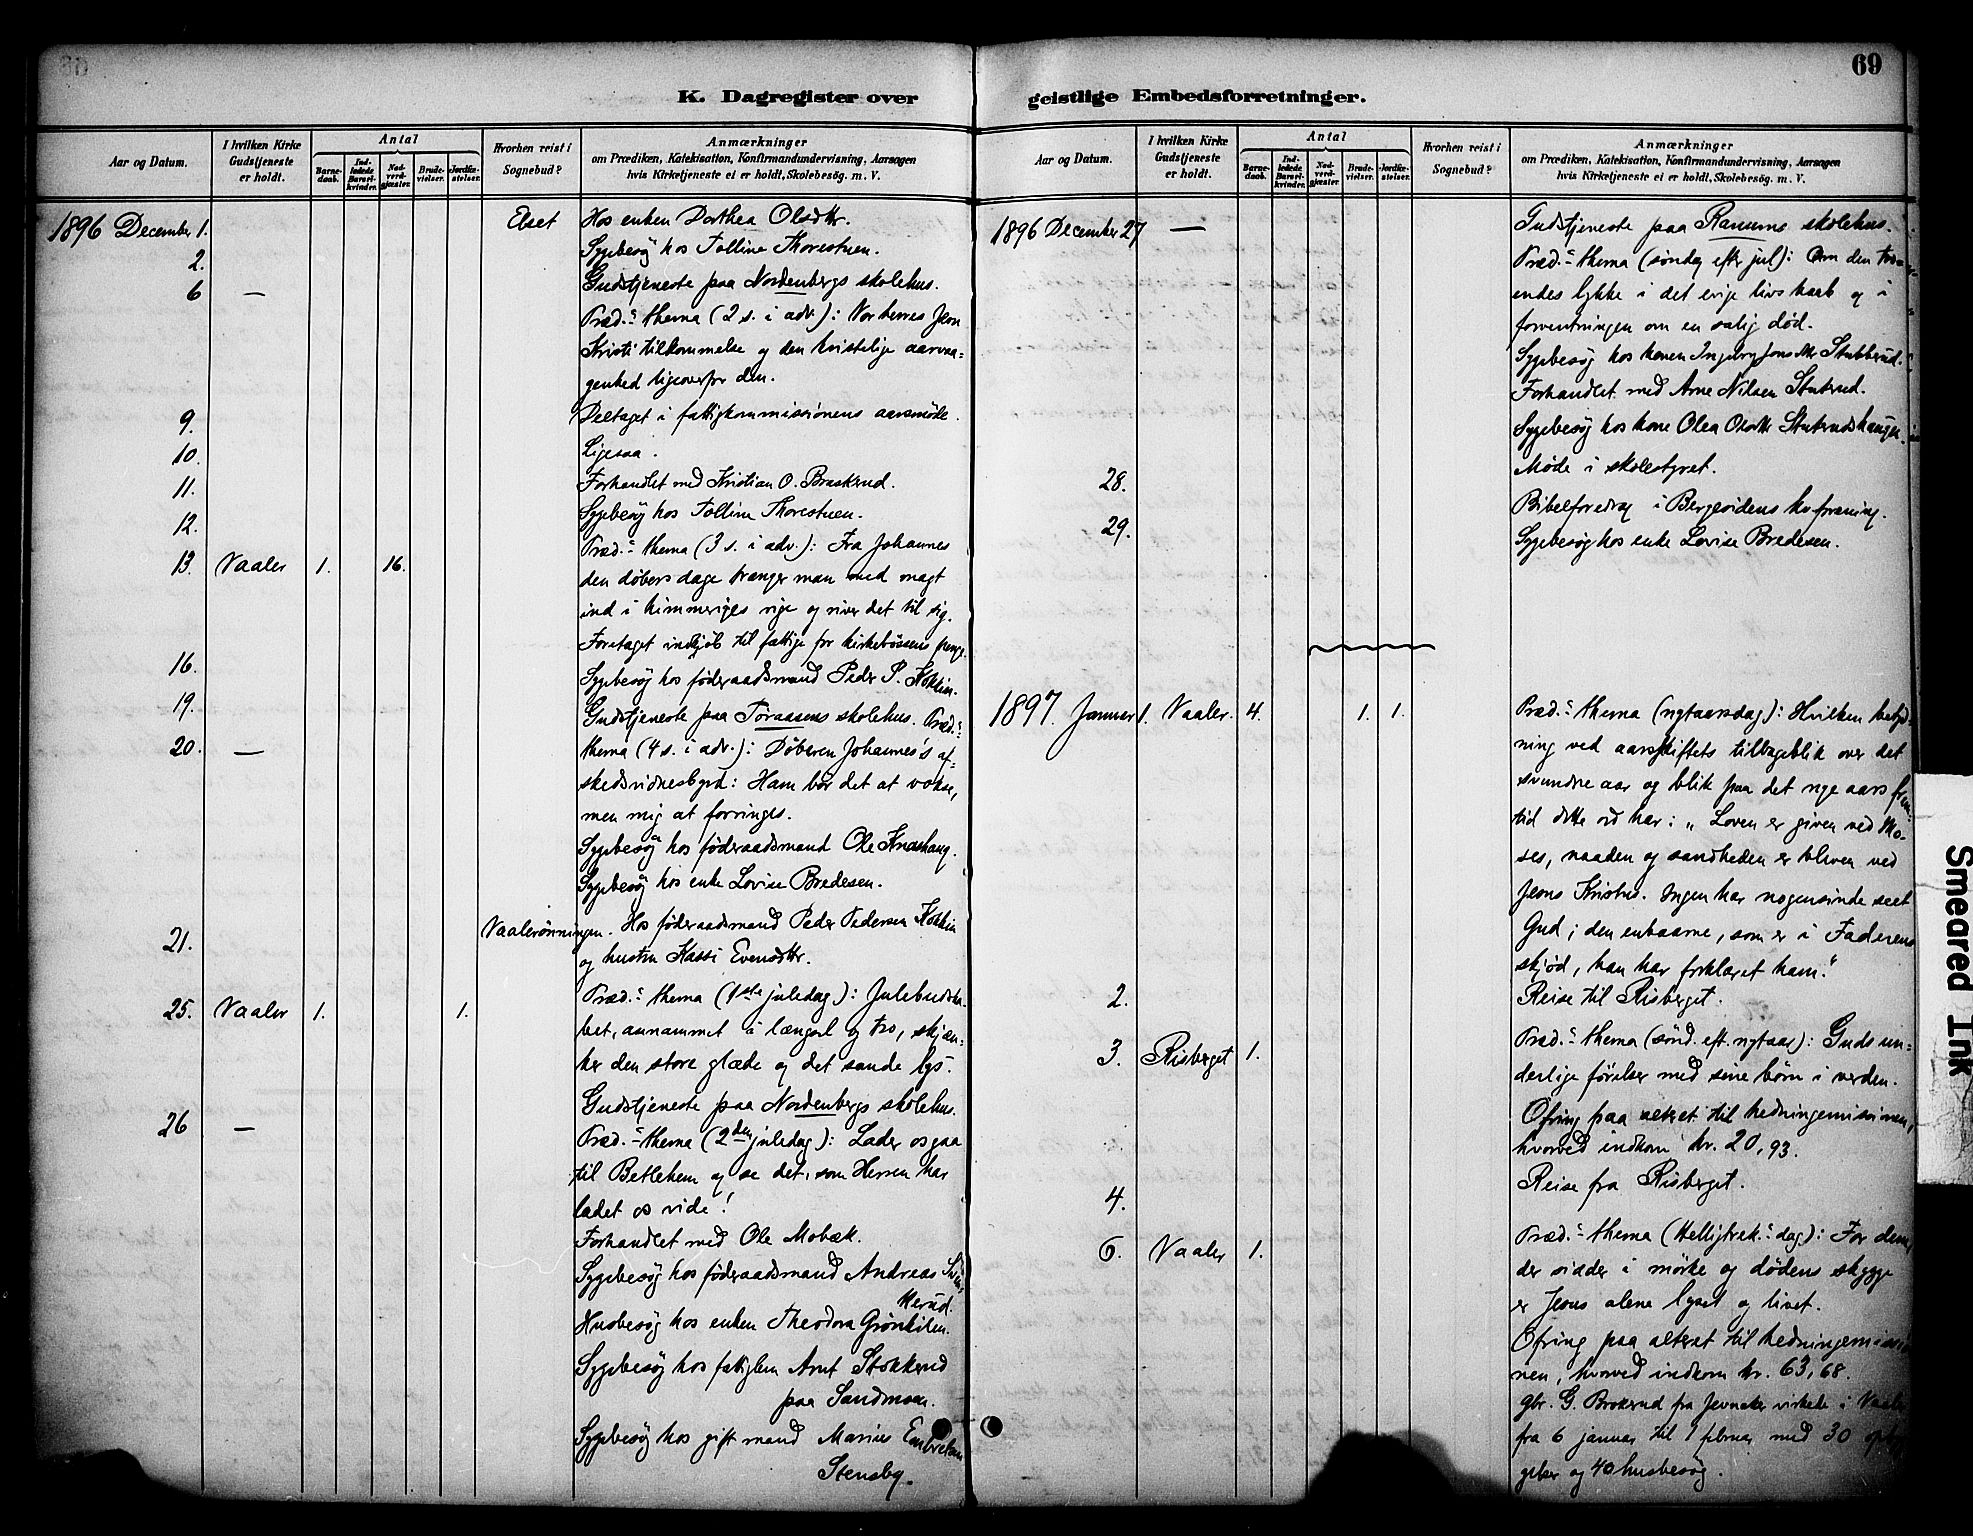 69
K. Dagregister over geistlige Embedsforretninger.
Aar og Datum.
I hvilken Kirke Gudstjeneste er holdt.
Antal
Barne-daab.
Ind-ledede Barsel-kvinder.
Nad-verd-gjæster.
Brude-vielser.
Jordfæ-stelser.
Hvorhen reist i Sognebud?
Anmærkninger
om Prædiken, Katekisation, Konfirmandundervisning, Aarsagen
hvis Kirketjeneste ei er holdt, Skolebesøg. m. V.
1896 December 1. Elset Hos enken Dorthea Olsdtr.
2. Sygebesøg hos Tolline Thorestuen.
6 — Gudstjeneste paa Nordenbergs skolehus.
Præd.- thema (2 s. i adv.): Vor herres Jesu
Kristi tilkommelse og den kristelige aarvaa-
genhed ligeoverfor den.
9. Deltaget i fattigkommissionens aarsmøde.
10. Ligesaa.
11. Forhandlet med Kristian O. Braskerud.
12. Sygebesøg hos Tolline Thorestuen.
13. Vaaler 1. 16. Præd.- thema (3 s. i adv.): Fra Johannes
den døbers dage trænger man med magt
ind i himmeriges rige og river det til sig.
16. Foretaget indkjøb til fattige for kirkebøssens penge.
19. Sygebesøg hos føderaadsmand Peder P.
20. — Gudstjeneste paa Toraasens skolehus. Præd.-
thema (4 s. i adv.): Døberen Johannes's af-
skedsvidnesbyrd: Ham bør det at vokse,
men mig at forringes.
Sygebesøg hos føderaadsmand Ole Knashaug.
Sygebesøg hos enke Lovise Bredesen.
21. Vaalerønningen. Hos føderaadsmand Peder Pedersen
og hustru Kassi Evensdtr.
25. Vaaler 1. 1. Præd.- thema (1ste juledag): Julebudska-
bet, annammet i længsel og tro, skjæn-
ker den store glæde og det sande lys.
26 — Gudstjeneste paa Nordenbergs skolehus.
Præd.- thema (2den juledag): Lader os gaa
til Betlehem og se det, som Herren har
ladet os vide!
Forhandlet med Ole Mobæk.
Sygebesøg hos føderaadsmand Andreas
Husbesøg hos enken Theodora Grønkilen.
Sygebesøg hos fattiglem Arnt Stokkerud
paa Sandmoen.
Sygebesøg hos gift mand Marius Embretsen
Stensby.
Aar og Datum.
I hvilken Kirke Gudstjeneste er holdt.
Antal
Barne-daab.
Ind-ledede Barsel-kvinder.
Nad-verd-gjæster.
Brude-vielser.
Jordfæ-stelser.
Hvorhen reist i Sognebud?
Anmærkninger
om Prædiken, Katekisation, Konfirmandundervisning, Aarsagen
hvis Kirketjeneste ei er holdt, Skolebesøg. m. V.
1896 December 27 — Gudstjeneste paa Ranums skolehus.
Præd.- thema (søndag efter jul): Om den tro-
endes lykke i det evige livs haab og i
forventningen om en salig død.
Sygebesøg hos konen Ingeborg Jonsdtr Stubberud.
Forhandlet med Arne Nilsen Stutrud.
Sygebesøg hos kone Olea Olsdtr Stutrudshaugen.
28. Møde i skolestyret.
29. Bibelforedrag i Bergesidens kv.forening.
Sygebesøg hos enke Lovise Bredesen.
1897. Januar 1. Vaaler. 4. 1. 1. Præd.- thema (nytaarsdag): Hvilken betyd-
ning ved aarsskiftets tilbageblik over det
svundne aar og blik paa det nye aars frem-
tid dette ord har: „Loven er given ved Mo-
ses, naaden og sandheden er bleven ved
Jesus Kristus. Ingen har nogensinde seet
Gud; den enbaarne, som er i Faderens
skjød, han har forklaret ham."
2. Reise til Risberget.
3. Risberget 1. Præd.- thema (sønd. eft. nytaar): Guds un-
derlige førelser med sine børn i verden.
Ofring paa alteret til hedningemissionen,
hvorved indkom kr. 20,93.
4. Reise fra Risberget.
6. Vaaler 1. Præd.- thema (Helligtrek.- dag): For dem,
der sidder i mørke og dødens skygge
er Jesus alene lyset og livet.
Ofring paa alteret til hedningemissio-
nen, hvorved indkom kr. 63,68.
gbr. G. Brokerud fra Jevnaker virkede i Vaaler
fra 6 januar til 1 februar med 30
og 40 husbesøg.
Smeared Ink